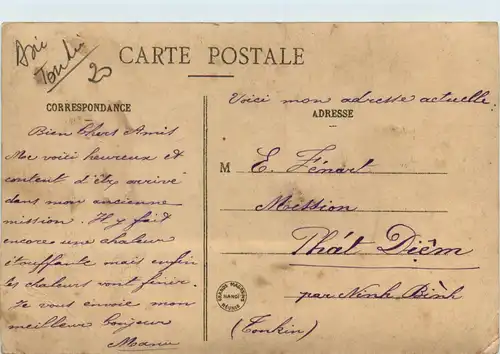 CARTE POSTALE
CORRESPONDANCE
Bien Chers Amis
Me voici heureux et
content d'être arrivé
dans mon ancienne
mission. Il y fait
encore une chaleur
étouffante mais enfin
les chaleurs vont finir.
Je vous envoie mon
meilleur bonjour
Voici mon adresse actuelle:
ADRESSE
M E. Fénart
Mission
Phát Diêm
par Ninh Binh
(Tonkin)
GRANDS MAGASINS
HANOI
RÉUNIS